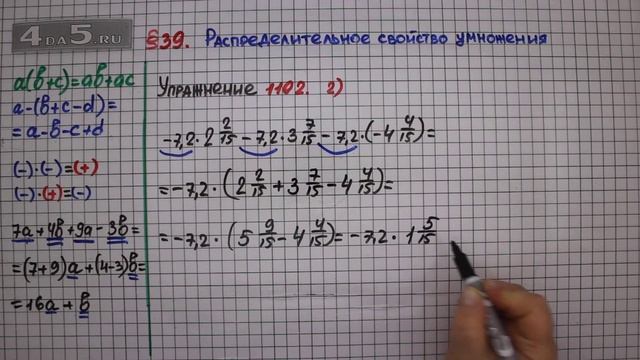 4DA5.RU
§39. Распределительное свойство умножения
a(b+c)=ab+ac
a-(b+c-d)=
=a-b-c+d
(-)·(-)=(+)
(-)·(+)=(-)
7a+4b+9a-3b=
=(7+9)a+(4-3)b=
=16a+b
Упражнение 1102. 2)
-7,2·2 2/15 -7,2·3 7/15 -7,2·(-4 4/15)=
=-7,2·(2 2/15+3 7/15-4 4/15)=
=-7,2·(5 9/15-4 4/15)=-7,2·1 5/15